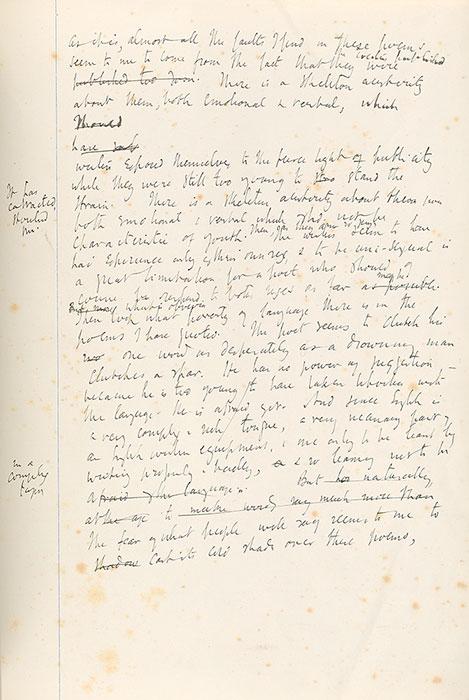 as it is, almost all the faults I find in these poems
seem to me to come from the fact that they were
written & published
published too soon. There is a skeleton austerity
about them, both emotional & verbal, which
should
have
writers exposed themselves to the fierce light of publicity
while they were still too young to stand the
It has
contracted
strain. There is a skeleton austerity about them
both emotional & verbal which
characteristic of youth. The writers seem to have
had experience only of their own sex, & to be uni-sexual is
a great limitation for a poet who should
to both sexes as far as possible.
Then look what poverty of language there is in the
poems I have quoted. The poet seems to clutch his
one word as desperately as a drowning man
clutches a spar. He has no power of suggestion -
because he is too young to have taken liberties with
the language. He is afraid of it. And since English is
a very complex & rich tongue,
in a
complex
a very necessary part of
an English writers equipment, & one only to be learnt by
writing profusely & recklessly, & so learning not to be
afraid of the language. But naturally,
at the age to make words say much more than
the fear of what people will say seems to me to
cast its cold shade over these poems,